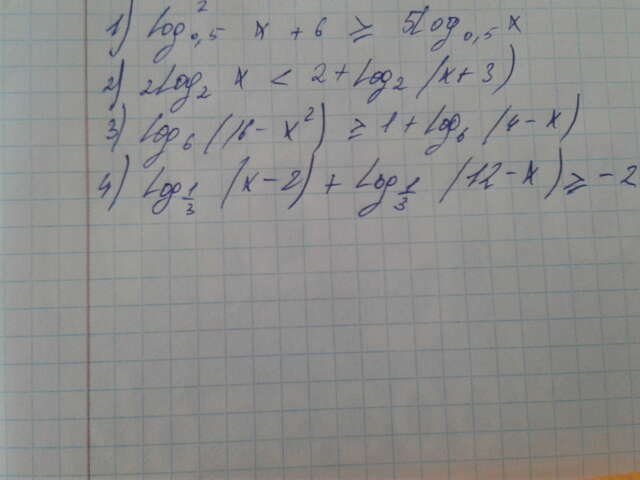 1) Log²₀,₅ x + 6 ≥ 5Log₀,₅ x
2) 2Log₂ x < 2 + Log₂ (x + 3)
3) Log₆ (16 - x²) ≥ 1 + Log₆ (4 - x)
4) Log 1/3 (x - 2) + Log 1/3 (12 - x) ≥ -2